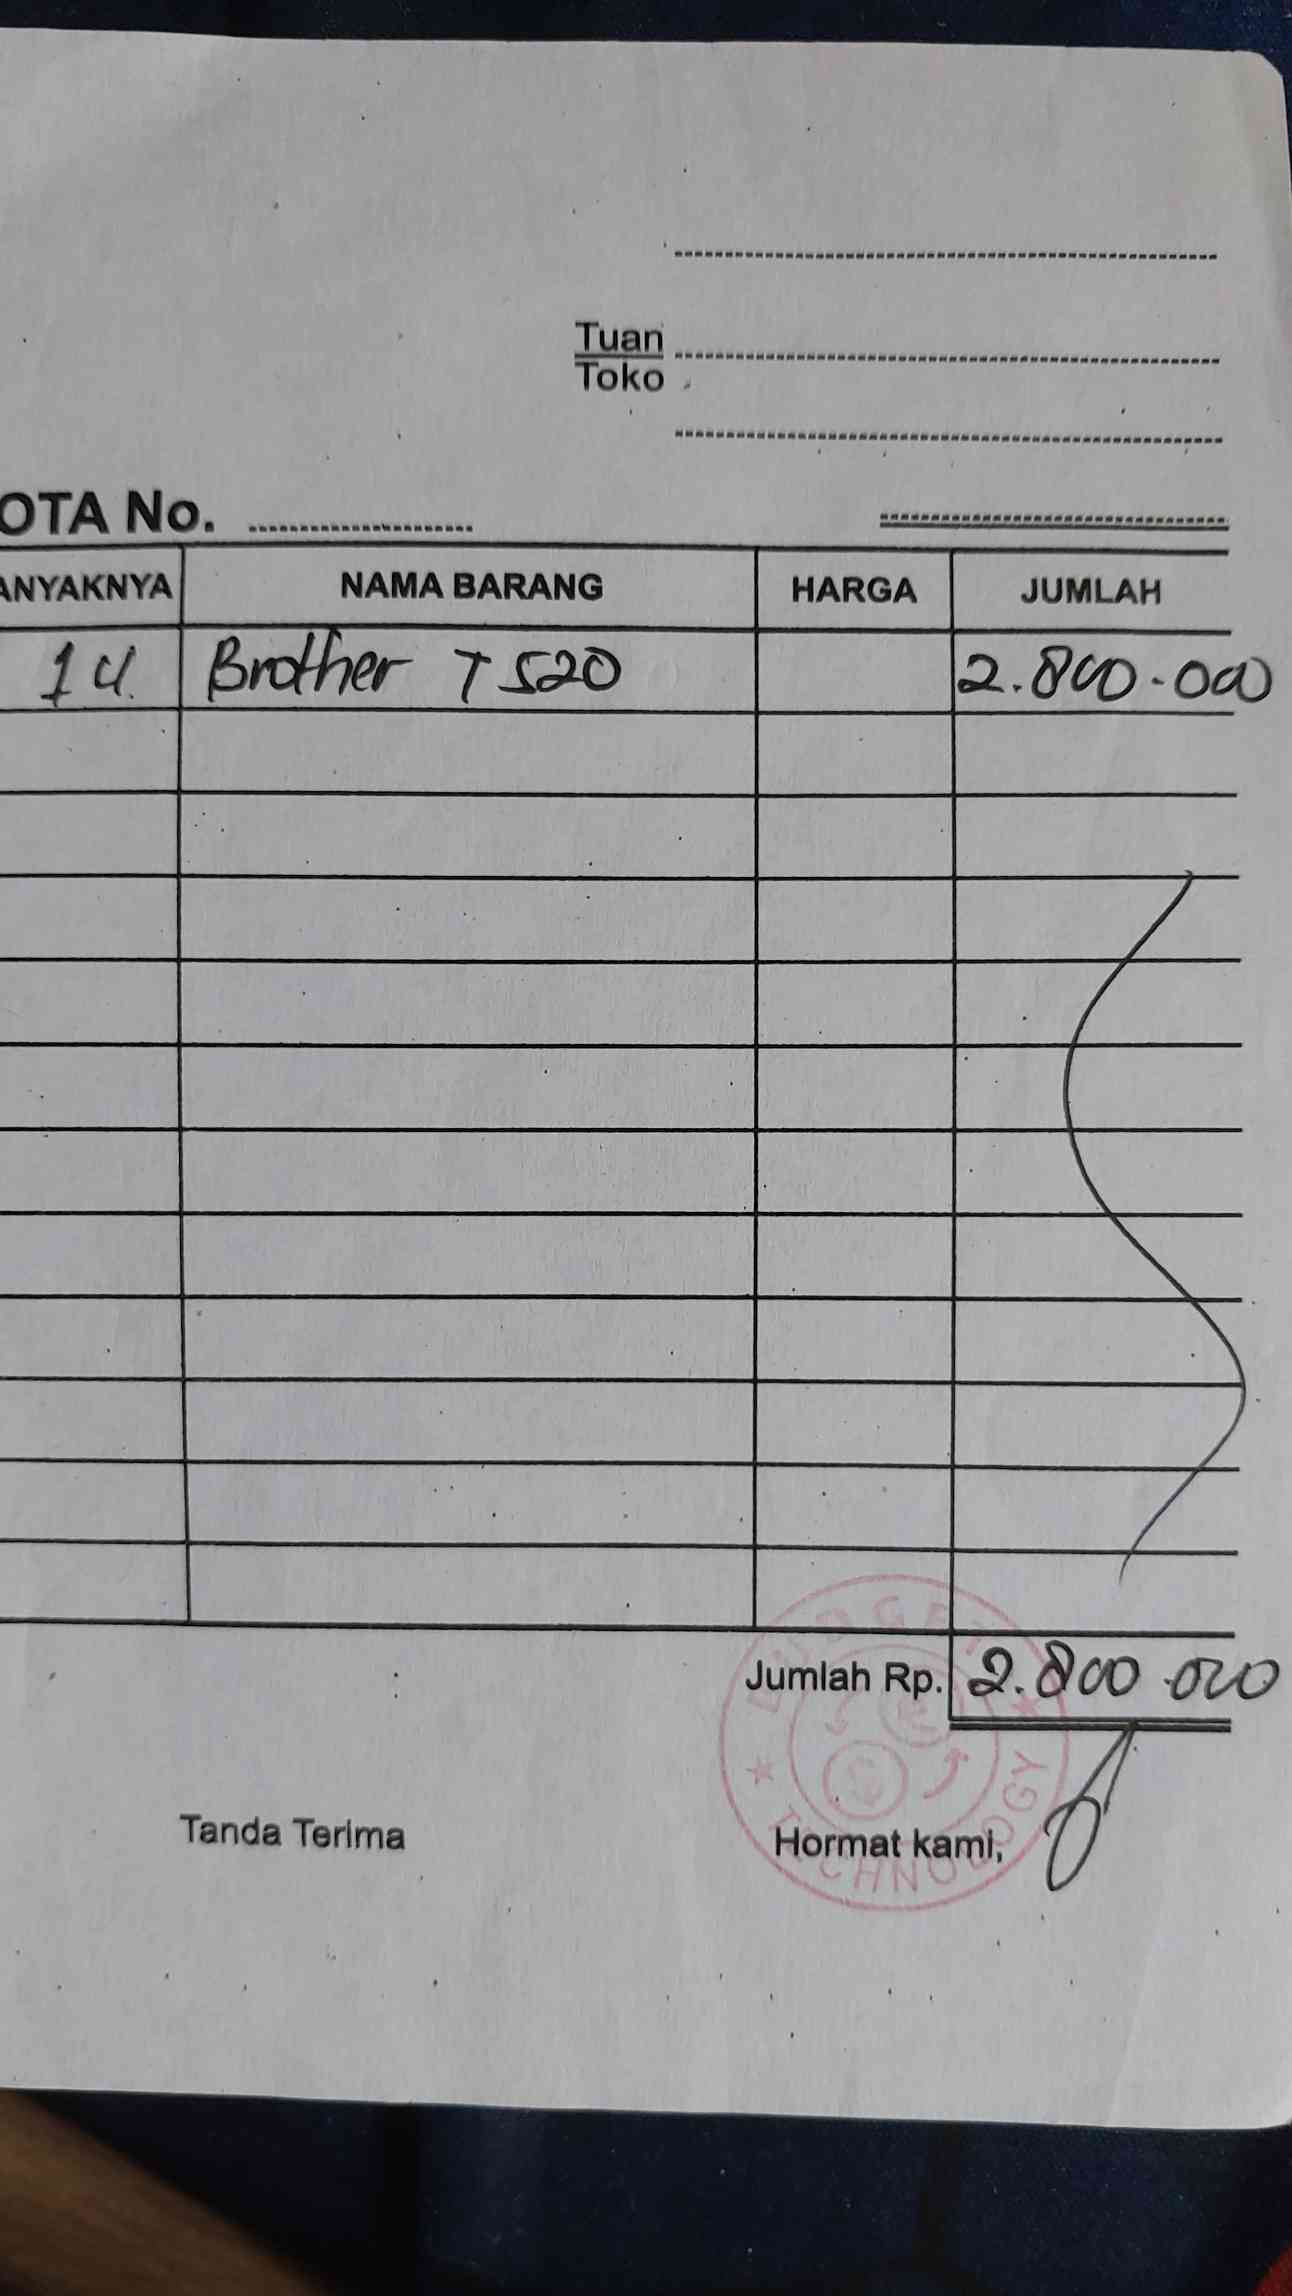 Tuan
Toko
OTA No.
ANYAKNYA NAMA BARANG HARGA JUMLAH
1 U. Brother T 520 2.800.000
Jumlah Rp. 2.800.000
Tanda Terima Hormat kami,
TECHNOLOGY